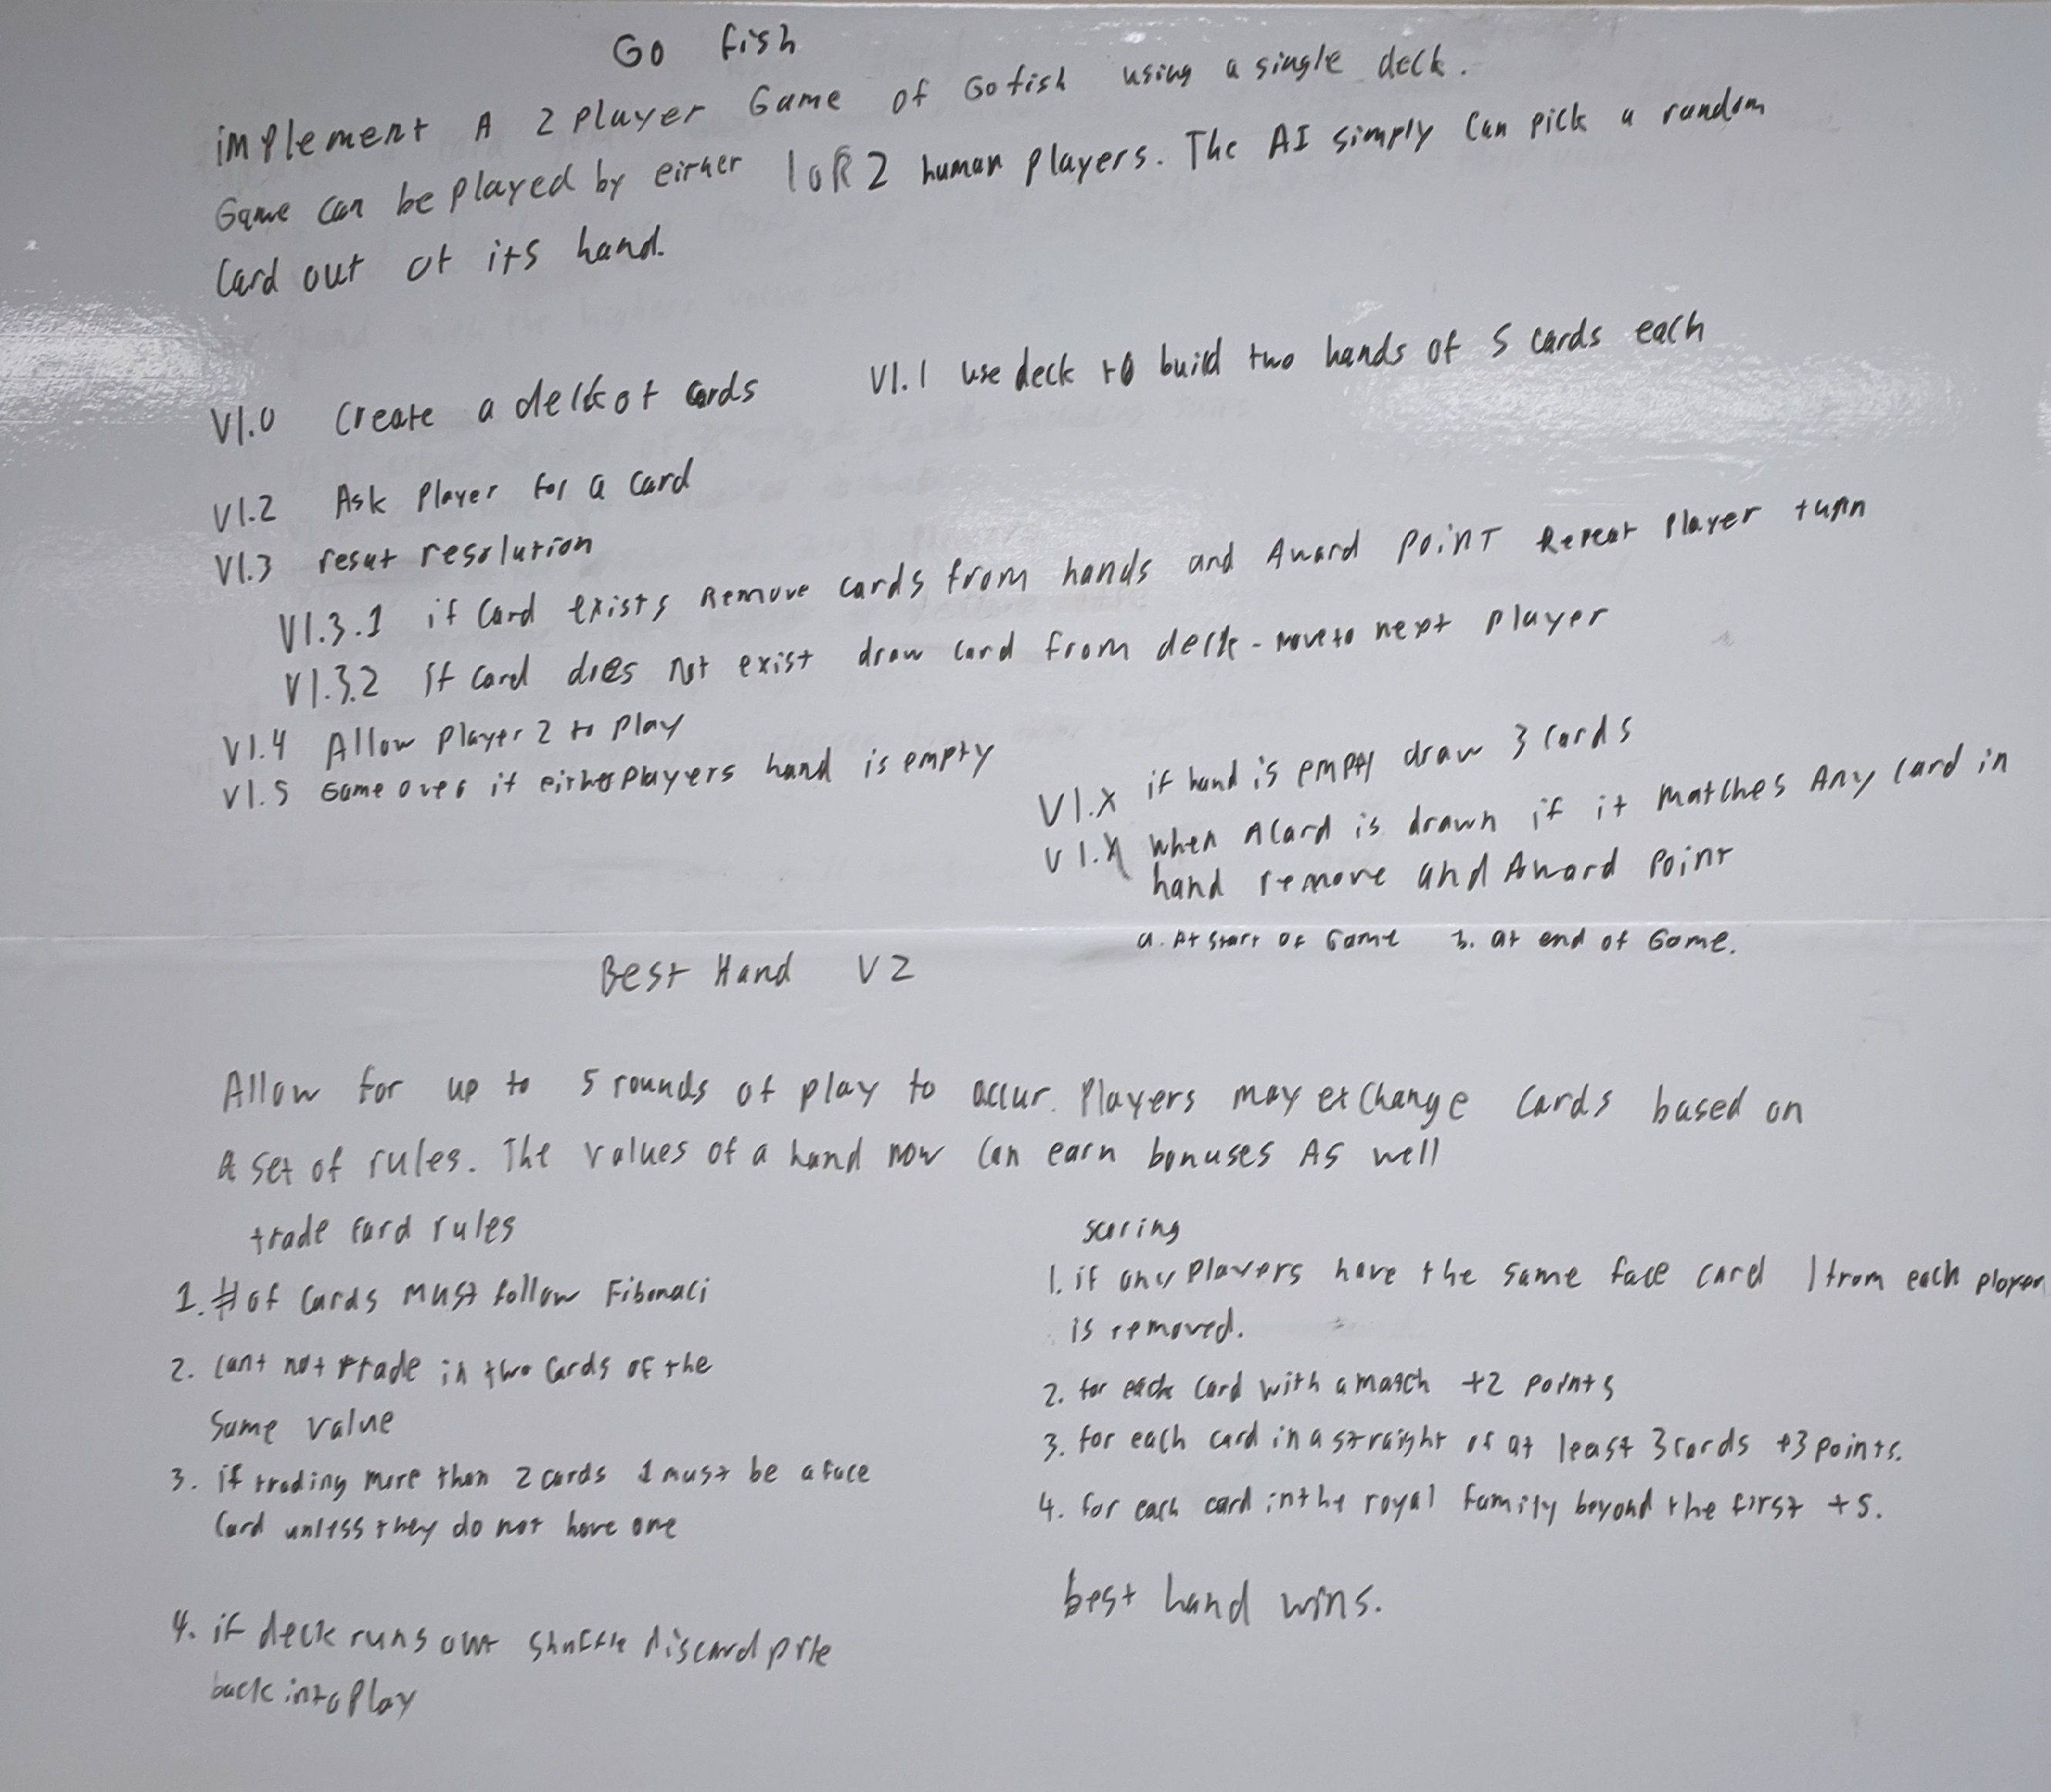 Go fish
implement A 2 Player Game of Go fish using a single deck.
Game can be played by either 1 oR 2 human players. The AI simply can pick a random
Card out of its hand.
V1.0 Create a deck of cards
V1.1 use deck to build two hands of 5 cards each
V1.2 Ask Player for a card
V1.3 resolution
V1.3.1 if Card exists Remove cards from hands and Award Point Repeat Player turn
V1.3.2 if card does not exist draw card from deck - move to next player
V1.4 Allow Player 2 to Play
V1.5 Game over if either Players hand is empty
V1.X if hand is empty draw 3 cards
V1.X when A Card is drawn if it matches Any card in
hand remove and Award Point
a. At start of Game 3. at end of Game.
Best Hand V2
Allow for up to 5 rounds of play to occur. Players may exchange cards based on
a set of rules. The values of a hand now can earn bonuses As well
trade card rules
1. # of Cards must follow Fibonaci
2. cant not trade in two cards of the
same value
3. if trading more than 2 cards 1 must be a face
Card unless they do not have one
4. if deck runs out shuffle discard pile
back into Play
scoring
1. if any Players have the same face card 1 from each player
is removed.
2. for each card with a match +2 points
3. for each card in a straight of at least 3 cards +3 points.
4. for each card in the royal family beyond the first +5.
best hand wins.